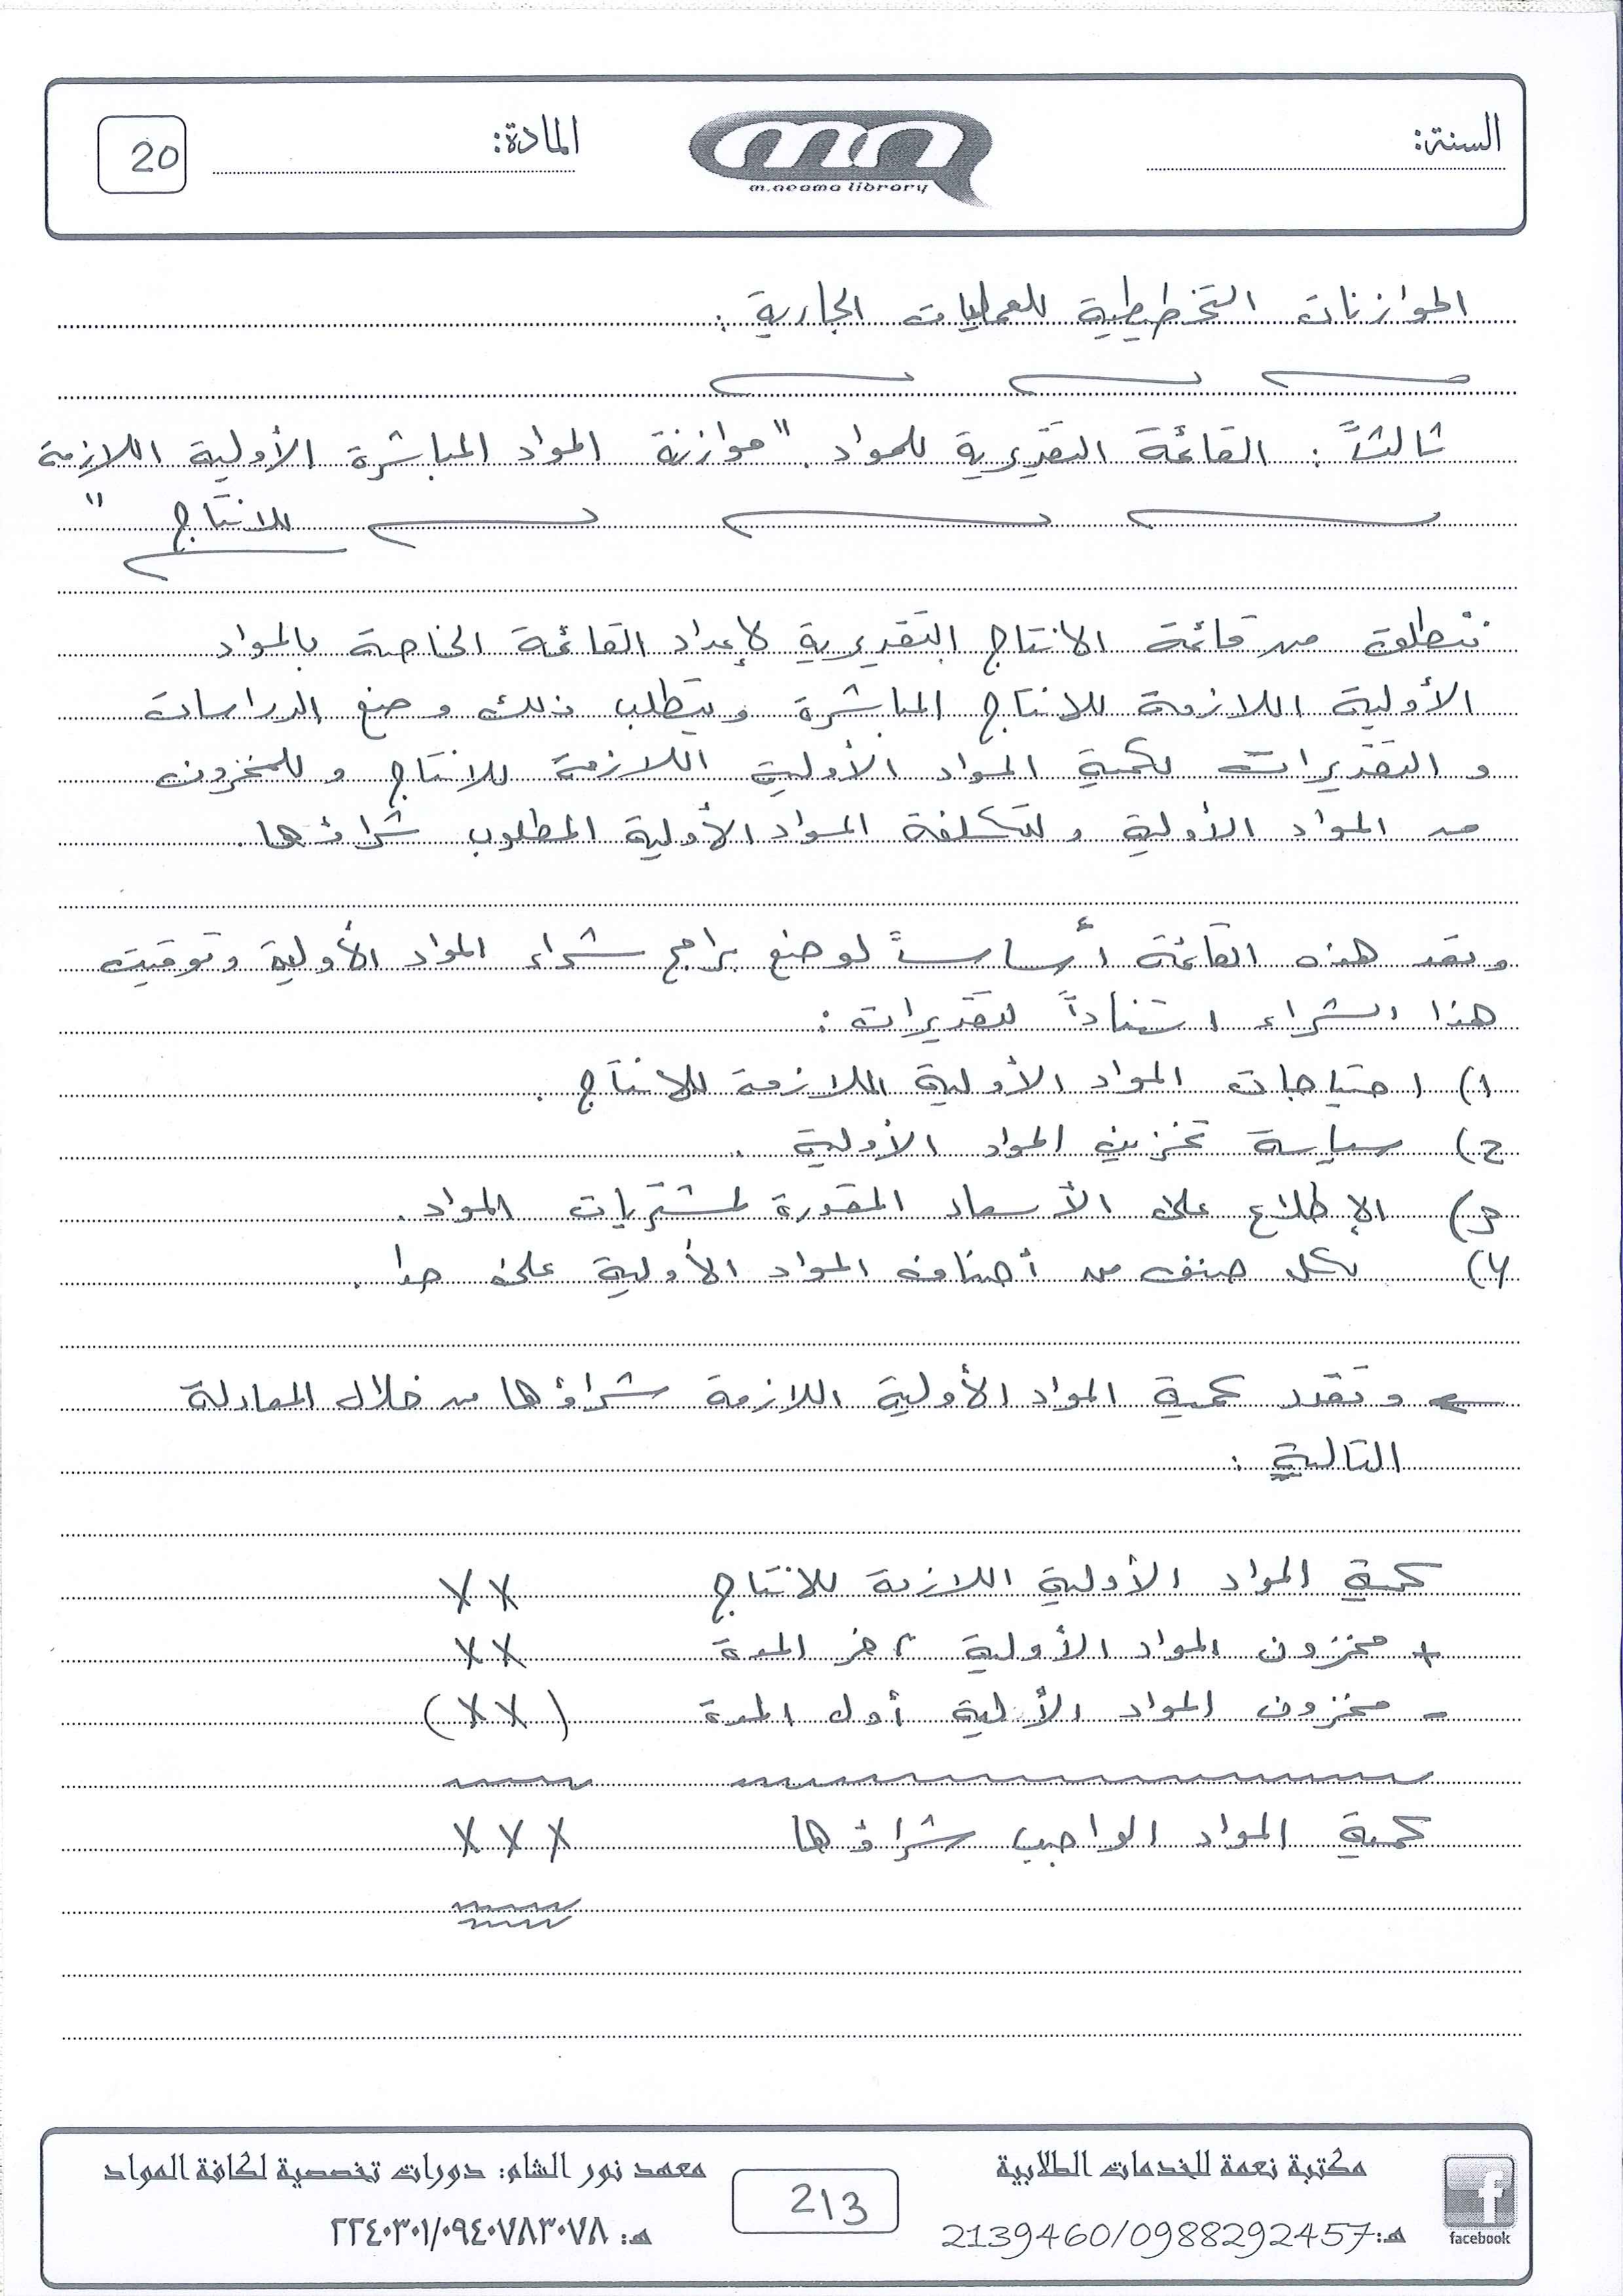 السنة:
m.neama library
المادة:
20
الموازنات التخطيطية للعمليات الجارية :
ثالثاً : القائمة التقديرية للمواد . "موازنة المواد المباشرة الأولية اللازمة
للانتاج "
ننطلق من قائمة الانتاج التقديرية لإعداد القائمة الخاصة بالمواد
الأولية اللازمة للانتاج المباشرة ويتطلب ذلك وضع الدراسات
و التقديرات لكمية المواد الأولية اللازمة للانتاج و للمخزون
من المواد الأولية و لتكلفة المواد الأولية المطلوب شراؤها .
وتعد هذه القائمة أساساً لوضع برامج شراء المواد الأولية وتوقيت
هذا الشراء استناداً لتقديرات :
١) احتياجات المواد الأولية اللازمة للانتاج .
ج) سياسة تخزين المواد الأولية .
الإطلاع على الأسعار المقدرة لمشتريات المواد .
لكل صنف من أصناف المواد الأولية على حدا .
← وتقدر كمية المواد الأولية اللازمة شراؤها من خلال المعادلة
التالية :
كمية المواد الأولية اللازمة للانتاج XX
+ مخزون المواد الأولية آخر المدة XX
- مخزون المواد الأولية أول المدة (XX)
كمية المواد الواجب شراؤها XXX
مكتبة نعمة للخدمات الطلابية
هـ: 2139460/0988292457
facebook
213
معهد نور الشام: دورات تخصصية لكافة المواد
هـ: ٢٢٤٠٣٠١/٠٩٤٠٧٨٣٠٧٨